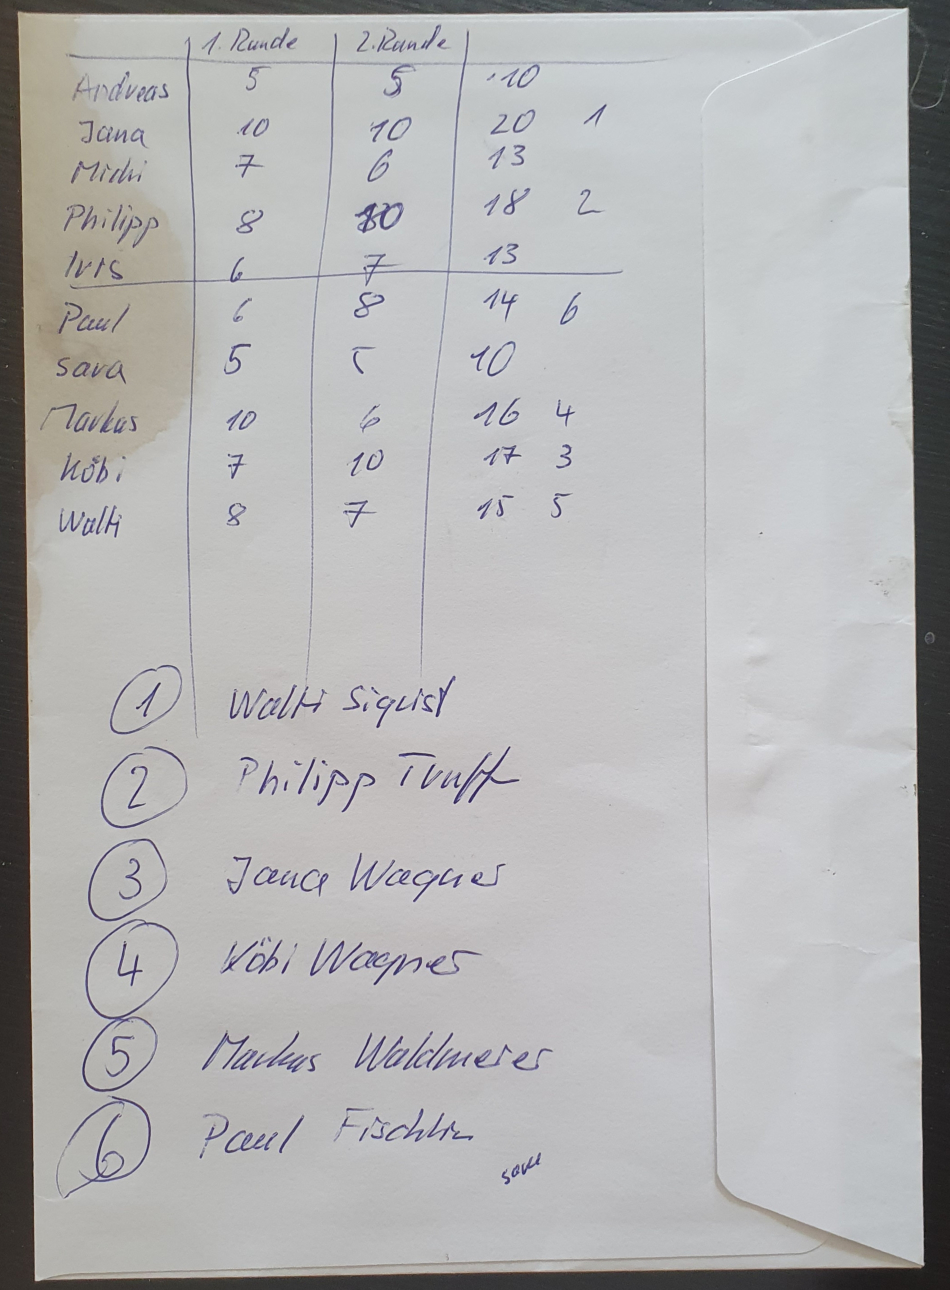 1. Runde 2. Runde
Andreas 5 5 10
Jana 10 10 20 1
Michi 7 6 13
Philipp 8 10 18 2
Iris 6 7 13
Paul 6 8 14 6
Sara 5 5 10
Markus 10 6 16 4
Köbi 7 10 17 3
Walti 8 7 15 5
1 Walti Sigrist
2 Philipp Truff
3 Jana Wagner
4 Köbi Wagner
5 Markus Waldmeier
6 Paul Fischlin